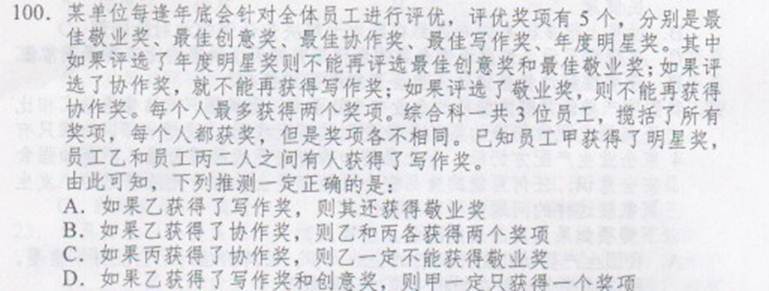 100. 某单位每逢年底会针对全体员工进行评优，评优奖项有 5 个，分别是最
佳敬业奖、最佳创意奖、最佳协作奖、最佳写作奖、年度明星奖。其中
如果评选了年度明星奖则不能再评选最佳创意奖和最佳敬业奖；如果评
选了协作奖，就不能再获得写作奖；如果评选了敬业奖，则不能再获得
协作奖。每个人最多获得两个奖项。综合科一共 3 位员工，揽括了所有
奖项，每个人都获奖，但是奖项各不相同。已知员工甲获得了明星奖，
员工乙和员工丙二人之间有人获得了写作奖。
由此可知，下列推测一定正确的是：
A．如果乙获得了写作奖，则其还获得敬业奖
B．如果乙获得了协作奖，则乙和丙各获得两个奖项
C．如果丙获得了协作奖，则乙一定不能获得敬业奖
D．如果乙获得了写作奖和创意奖，则甲一定只获得一个奖项